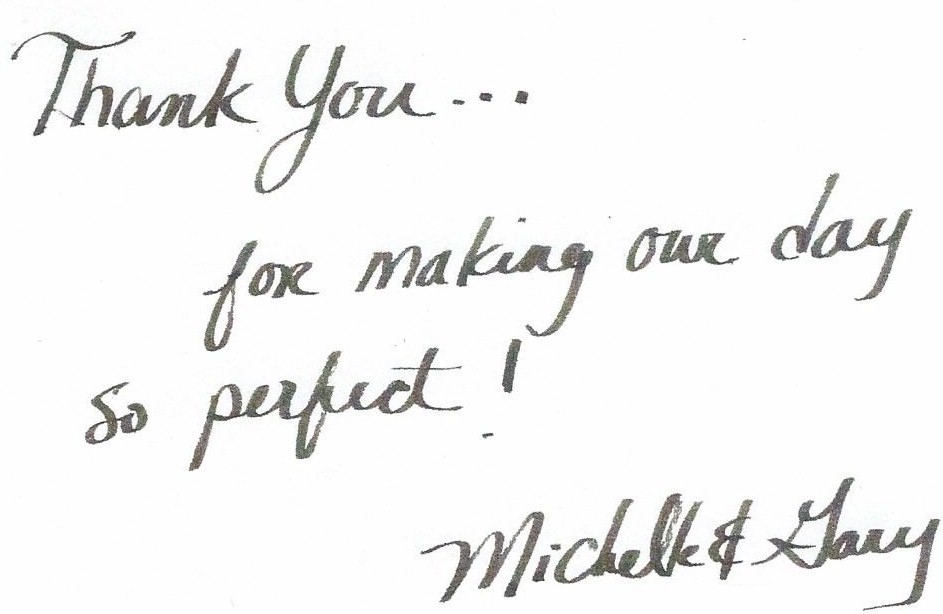 Thank You...
for making our day
so perfect!
Michelle & Gary